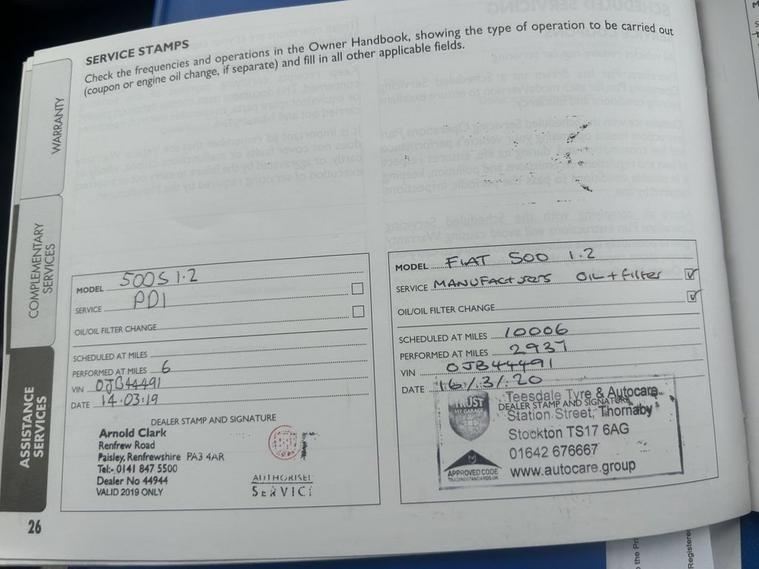 SERVICE STAMPS
Check the frequencies and operations in the Owner Handbook, showing the type of operation to be carried out
(coupon or engine oil change, if separate) and fill in all other applicable fields.
WARRANTY
COMPLEMENTARY
SERVICES
ASSISTANCE
SERVICES
MODEL 500S 1.2
SERVICE PDI
OIL/OIL FILTER CHANGE
SCHEDULED AT MILES
PERFORMED AT MILES 6
VIN OJB44491
DATE 14.03.19
DEALER STAMP AND SIGNATURE
Arnold Clark
Renfrew Road
Paisley, Renfrewshire PA3 4AR
Tel:- 0141 847 5500
Dealer No 44944
VALID 2019 ONLY
AUTHORISED
SERVICE
MODEL FIAT 500 1.2
SERVICE MANUFACTURERS OIL + filter
OIL/OIL FILTER CHANGE
SCHEDULED AT MILES 10006
PERFORMED AT MILES 2937
VIN OJB44491
DATE 16/3/20
DEALER STAMP AND SIGNATURE
TRUST
MY GARAGE
APPROVED CODE
TRADINGSTANDARDS.UK
Teesdale Tyre & Autocare
Station Street, Thornaby
Stockton TS17 6AG
01642 676667
www.autocare.group
26
Registere